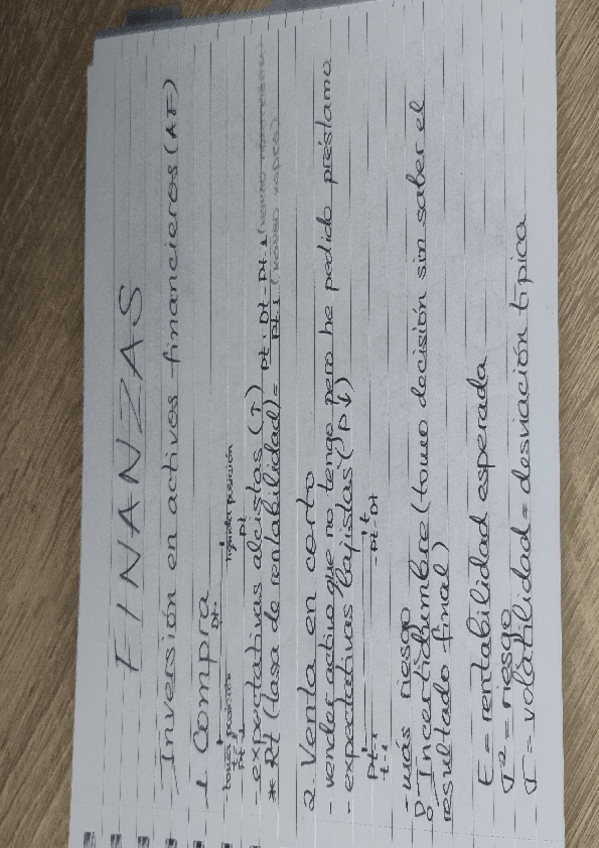 FINANZAS
Inversión en activos financieros (AF)
1. Compra
Dt
- tomar posición liquidar posición
t-1 t
Pt-1 Pt
- expectativas alcistas (↑)
* Rt (tasa de rentabilidad) = Pt + Dt - Pt-1
Pt-1
2. Venta en corto
- vender activo que no tengo pero he pedido préstamo
- expectativas bajistas (P↓)
Pt-1 t
t-1 - Pt - Dt
- más riesgo
Incertidumbre (tomo decisión sin saber el
resultado final)
E = rentabilidad esperada
σ² = riesgo
σ = volatilidad = desviación típica